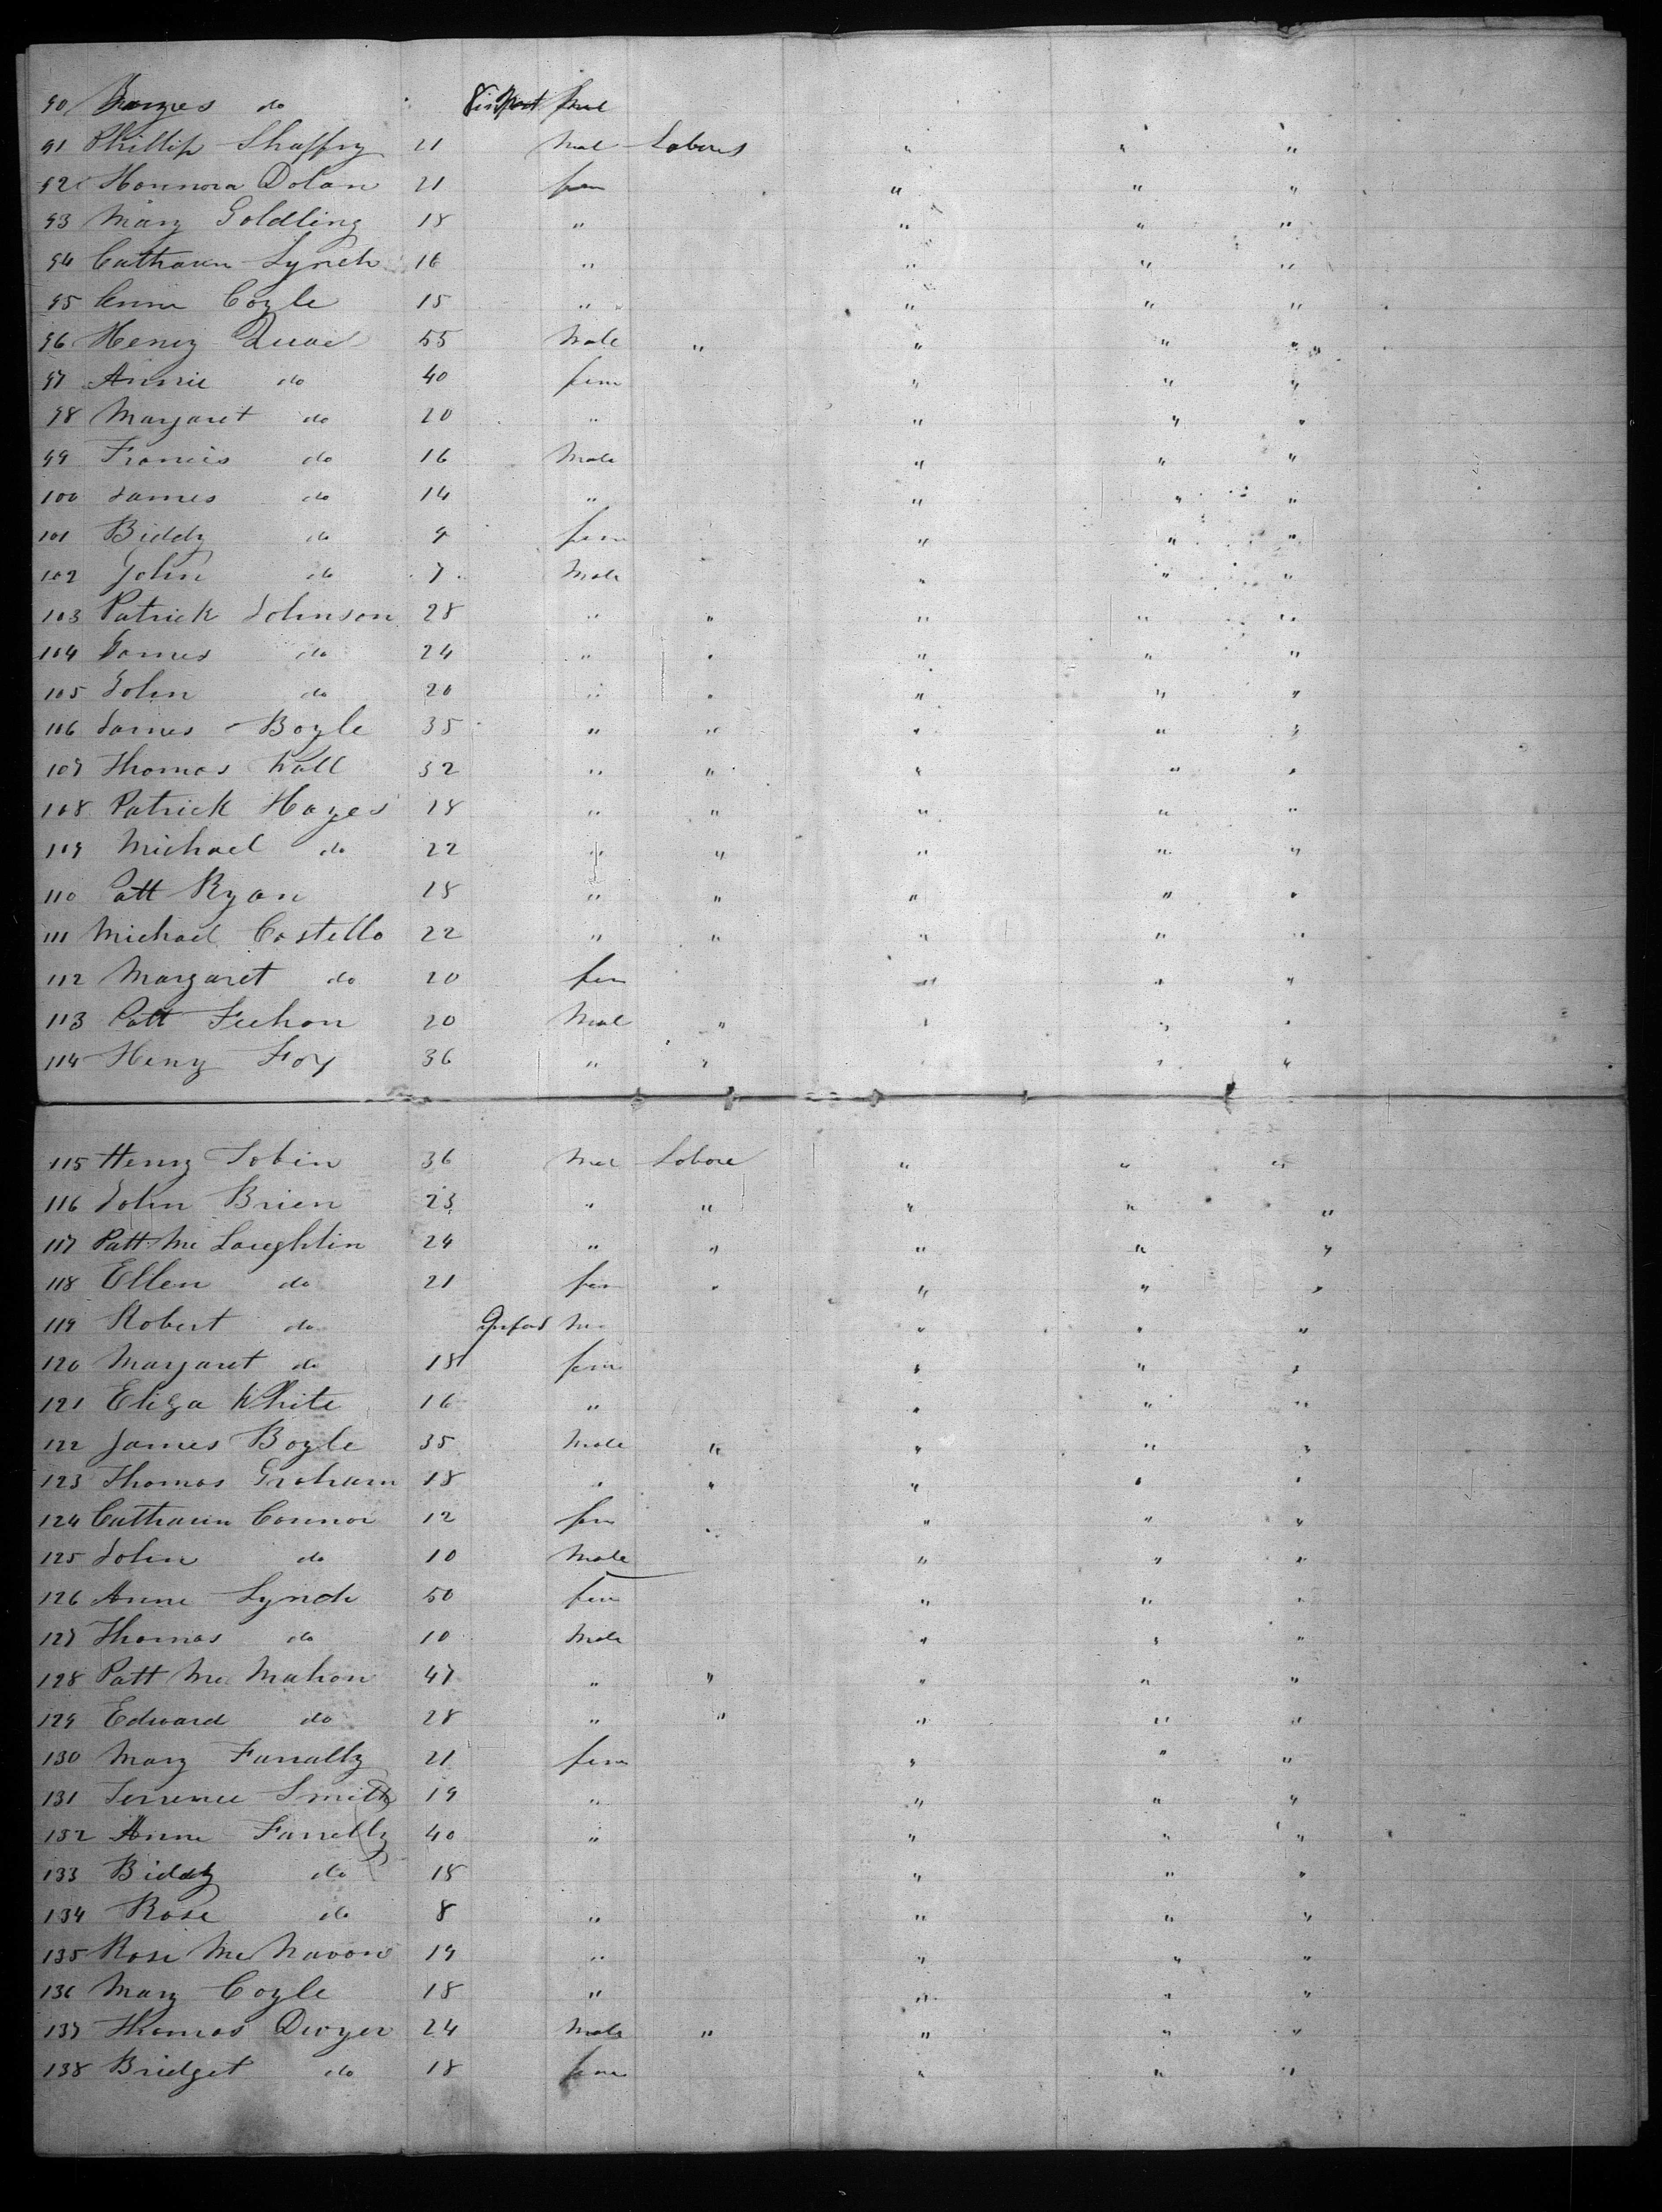 90 James do Infant
91 Phillip Shaffry 21 Mal Labours " " "
92 Honnora Dolan 21 fem " " "
93 Mary Goldling 18 " " " "
94 Catharin Lynch 16 " " " "
95 Anne Coyle 15 " " " "
96 Henry Quail 55 Male " " " "
97 Annie do 40 fem " " "
98 Margaret do 20 " " " "
99 Francis do 16 Male " " "
100 James do 14 " " " "
101 Biddy do 9 fem " " "
102 John do 7 Male " " "
103 Patrick Johnson 28 " " " " "
104 James do 24 " " " " "
105 John do 20 " " " " "
106 James Boyle 35 " " " " "
107 Thomas Wall 32 " " " " "
108 Patrick Hayes 18 " " " " "
109 Michael do 22 " " " " "
110 Patt Ryan 18 " " " " "
111 Michael Costello 22 " " " " "
112 Margaret do 20 fem " " "
113 Patt Feehon 20 Mal " " " "
114 Henry Foy 36 " " " " "
115 Henry Tobin 36 Mal Labore " " "
116 John Brien 23 " " " " "
117 Patt Mc Loughlin 24 " " " " "
118 Ellen do 21 fem " " " "
119 Robert do Infant " " "
120 Margaret do 18 fem " " "
121 Eliza White 16 " " " "
122 James Boyle 35 Male " " " "
123 Thomas Graham 18 " " " " "
124 Catharin Connor 12 fem " " "
125 John do 10 Male " " "
126 Anne Lynch 50 fem " " "
127 Thomas do 10 Male " " "
128 Patt Mc Mahon 47 " " " " "
129 Edward do 28 " " " " "
130 Mary Farrally 21 fem " " "
131 Terrence Smith 19 " " " "
132 Anne Farrelly 40 " " " "
133 Biddy do 18 " " "
134 Rose do 8 " " " "
135 Rose Mc 19 " " " "
136 Mary Coyle 18 " " " "
137 Thomas Dwyer 24 Male " " " "
138 Bridget do 18 fem " " "